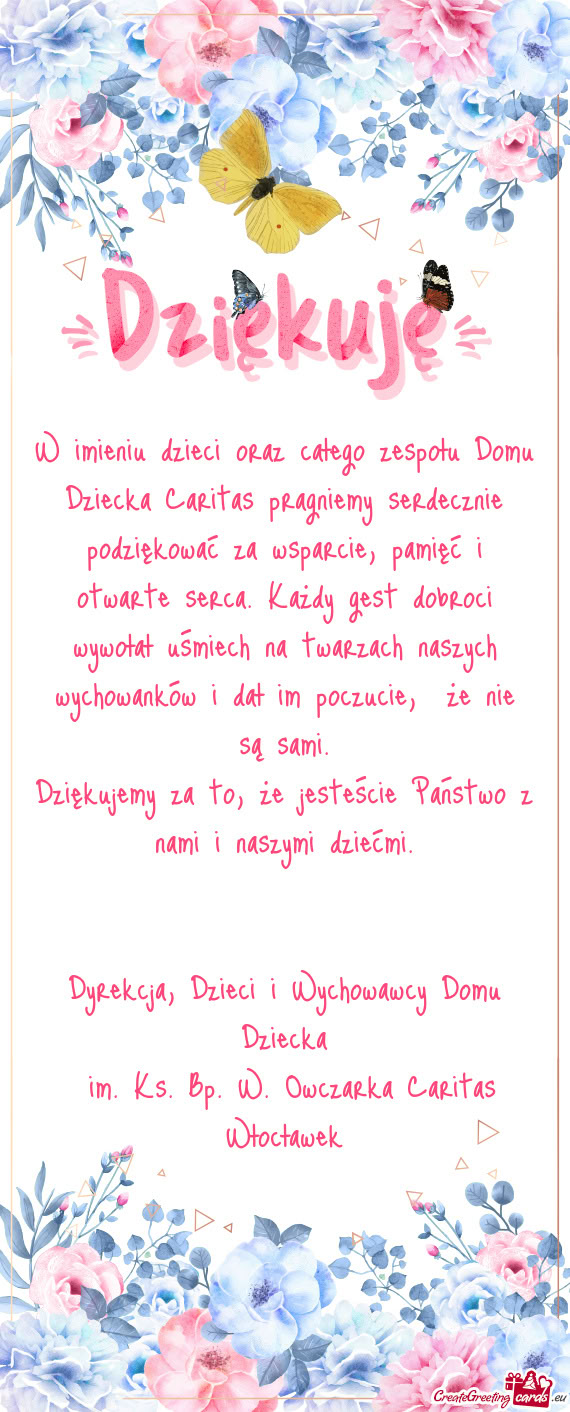 Dziękuję
W imieniu dzieci oraz całego zespołu Domu
Dziecka Caritas pragniemy serdecznie
podziękować za wsparcie, pamięć i
otwarte serca. Każdy gest dobroci
wywołał uśmiech na twarzach naszych
wychowanków i dał im poczucie, że nie
są sami.
Dziękujemy za to, że jesteście Państwo z
nami i naszymi dziećmi.
Dyrekcja, Dzieci i Wychowawcy Domu
Dziecka
im. Ks. Bp. W. Owczarka Caritas
Włocławek
CreateGreeting cards .eu